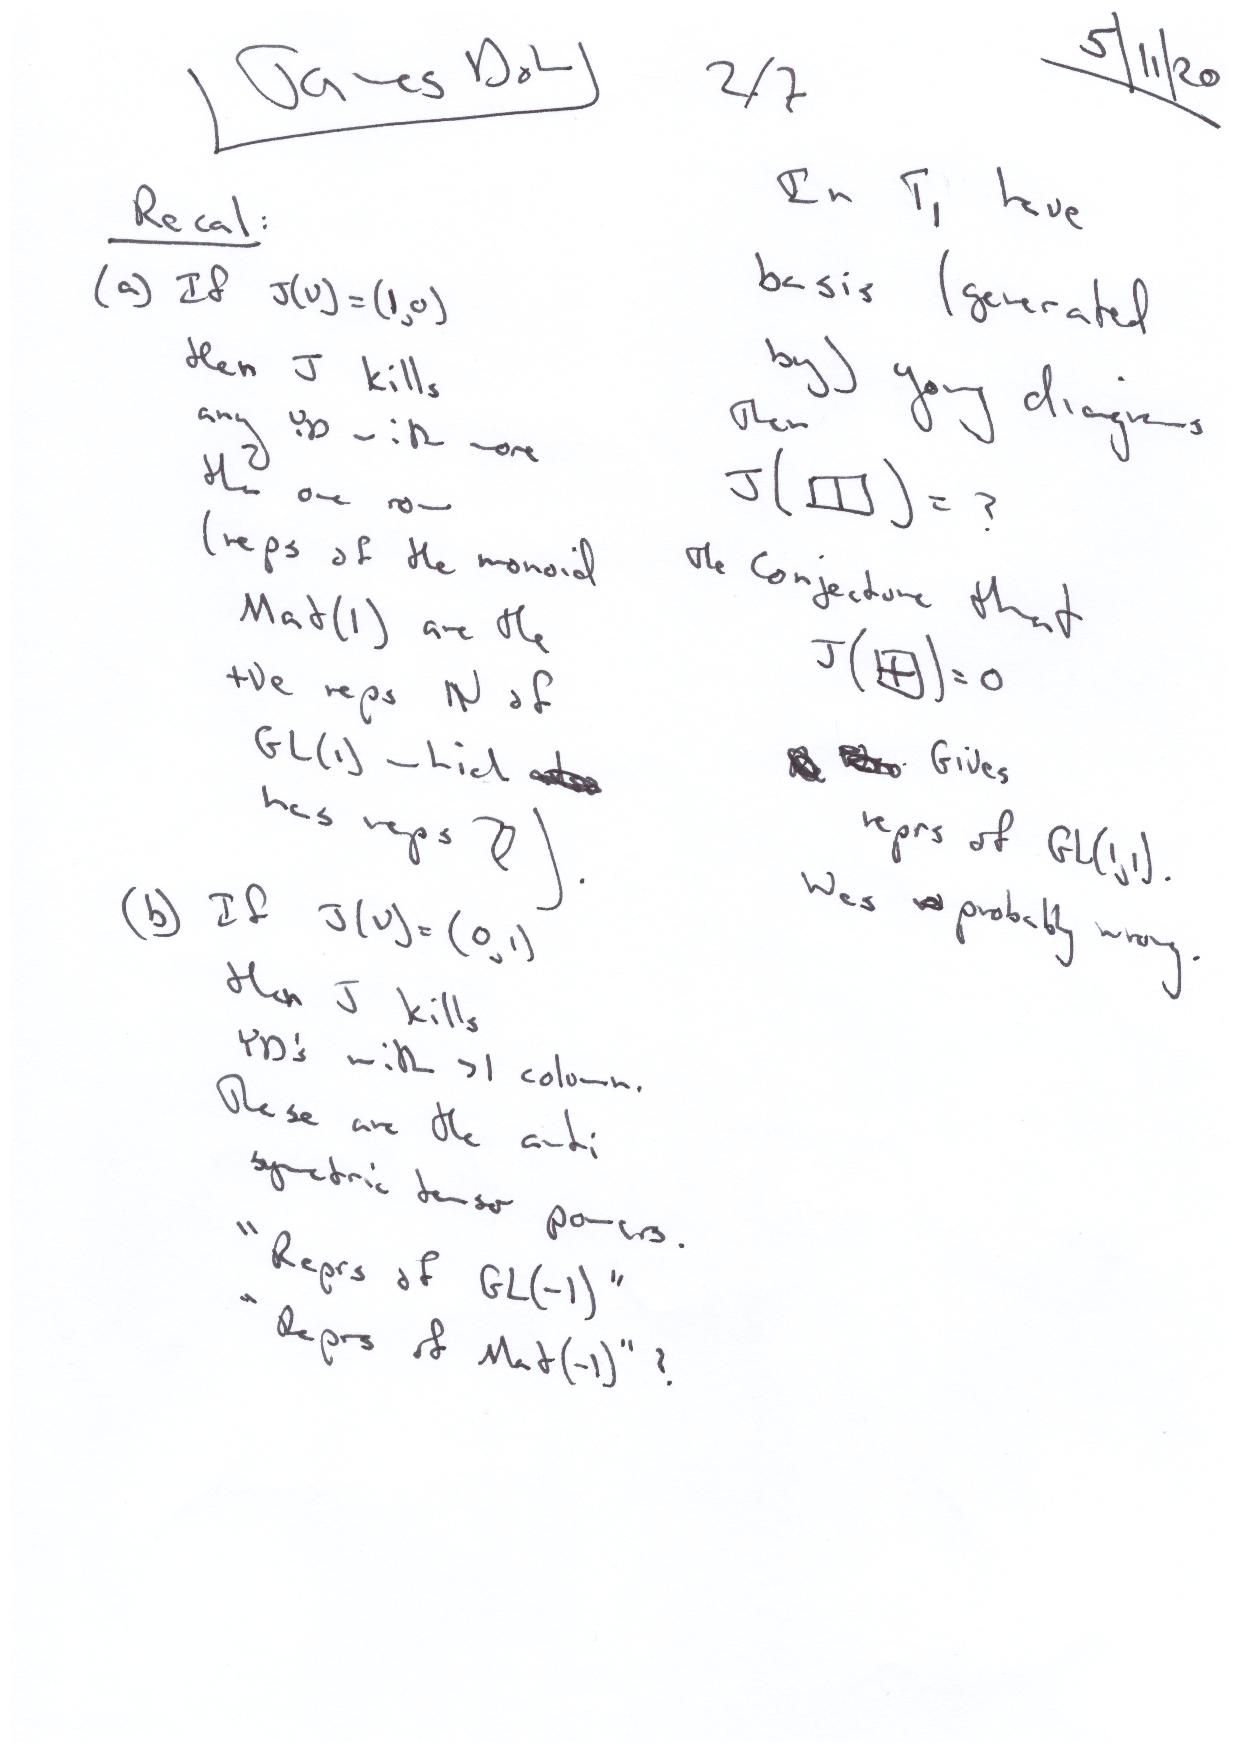 James Dol
2/7
5/11/20
Recal:
(a) If J(V)=(1,0)
then J kills
any YD with more
than one row
(reps of the monoid
Mat(1) are the
+ve reps ℕ of
GL(1) which
has reps ℤ).
(b) If J(V)=(0,1)
then J kills
YD's with >1 column.
These are the anti
symetric tensor powers.
"Reprs of GL(-1)"
"Reprs of Mat(-1)"?
In T₁ have
basis (generated
by) young diagrams
Then
J( )=?
The conjecture that
J( )=0
Gives
reprs of GL(1,1).
Was probably wrong.